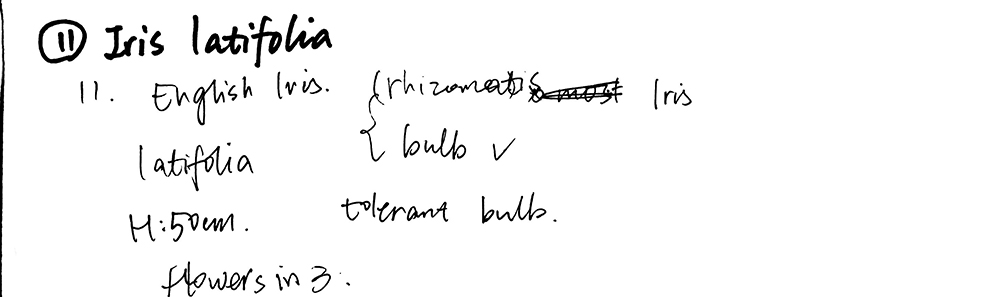 ⑪ Iris latifolia
11. English Iris. { rhizomatis Iris
{ bulb ✓
latifolia
H:50cm. tolerant bulb.
flowers in 3.